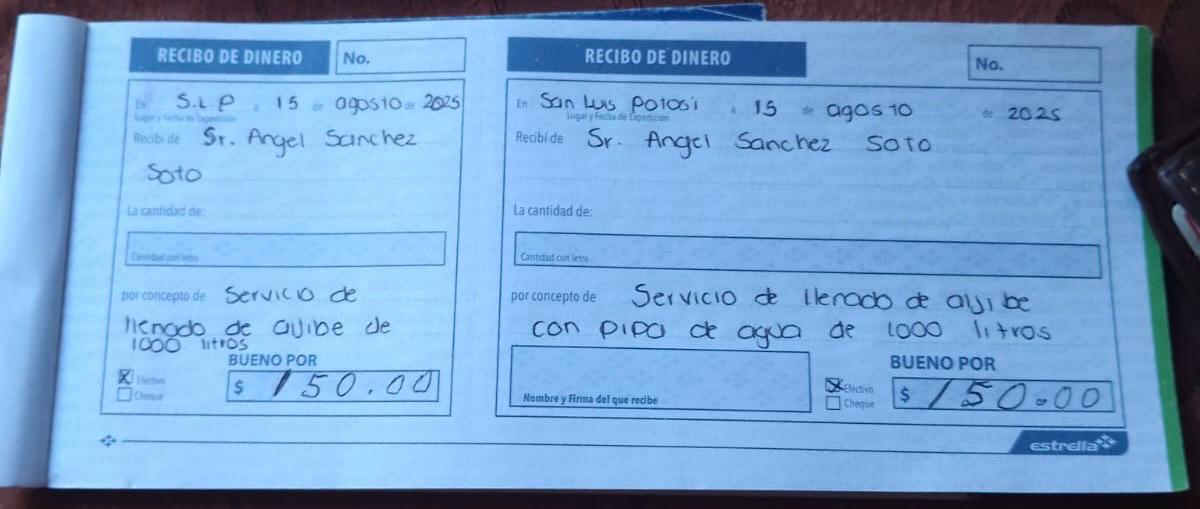 RECIBO DE DINERO No.
En S.L.P a 15 de agosto de 2025
Lugar y Fecha de Expedición
Recibí de Sr. Angel Sanchez
Soto
La cantidad de:
Cantidad con letra
por concepto de Servicio de
llenado de aljibe de
1000 litros
BUENO POR
Efectivo
Cheque
$ 150.00
RECIBO DE DINERO No.
En San Luis Potosi a 15 de agosto de 2025
Lugar y Fecha de Expedición
Recibí de Sr. Angel Sanchez Soto
La cantidad de:
Cantidad con letra
por concepto de Servicio de llenado de aljibe
con pipa de agua de 1000 litros
Nombre y Firma del que recibe
BUENO POR
Efectivo
Cheque
$ 150.00
estrella